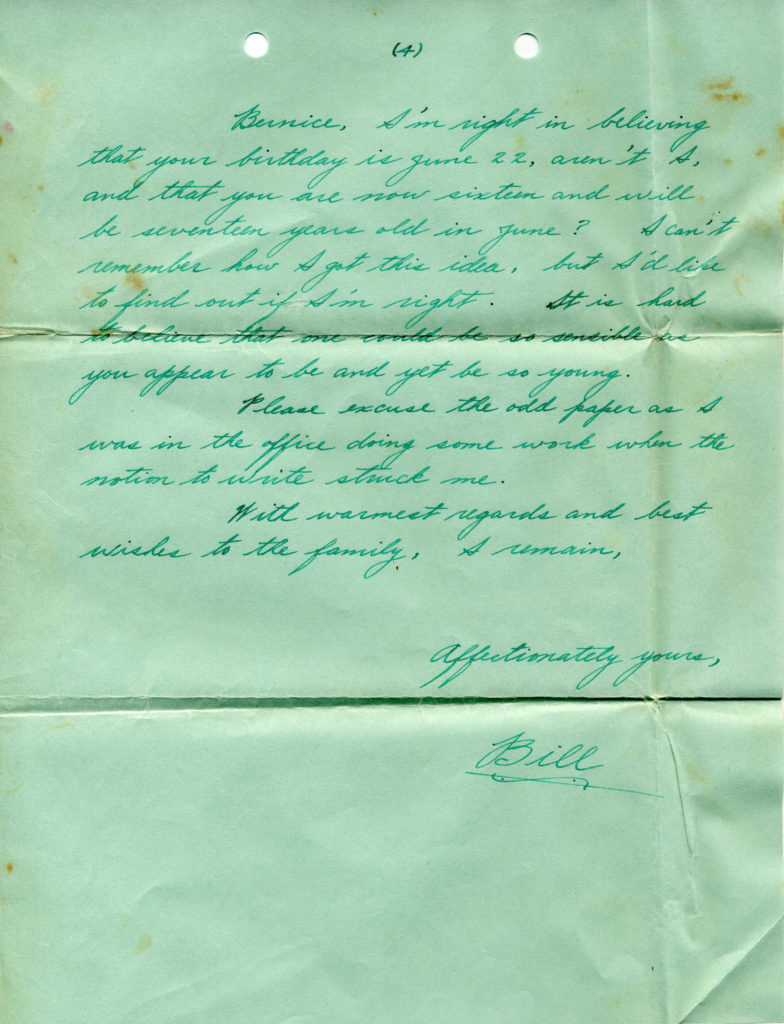 (4)
Bernice, I'm right in believing
that your birthday is June 22, aren't I,
and that you are now sixteen and will
be seventeen years old in June? I can't
remember how I got this idea, but I'd like
to find out if I'm right. It is hard
to believe that one could be so sensible as
you appear to be and yet be so young.
Please excuse the odd paper as I
was in the office doing some work when the
notion to write struck me.
With warmest regards and best
wishes to the family, I remain,
Affectionately yours,
Bill